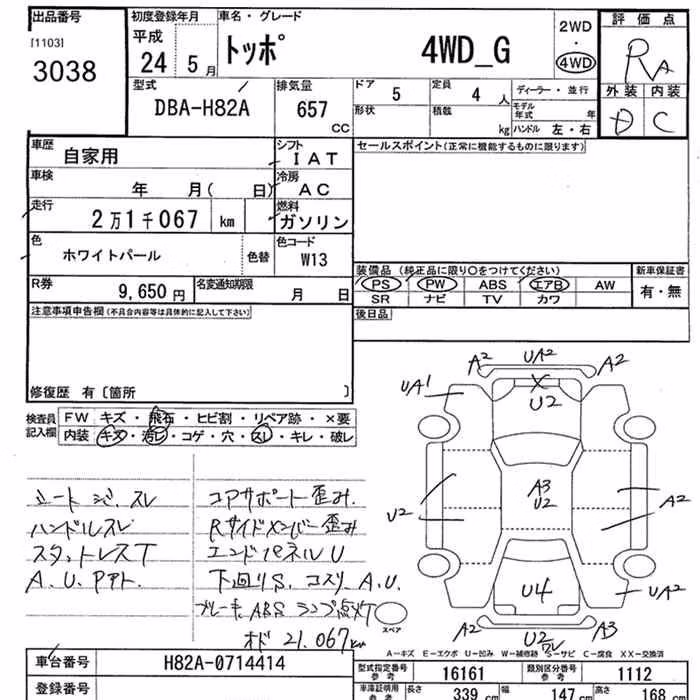 出品番号 初度登録年月 車名・グレード 評価点
[1103] 平成 トッポ 4WD_G 2WD ・ 4WD RA
3038 24 5月
型式 排気量 ドア 5 定員 4人 ディーラー・並行 外装 内装
DBA-H82A 657 CC 形状 積載 kg モデル年式 年 D C
ハンドル 左・右
車歴 自家用 シフト IAT セールスポイント(正常に機能するものに限ります)
車検 年 月( 日) 冷房 AC
走行 2万1千067 km 燃料 ガソリン
色 ホワイトパール 色替 色コード W13
装備品 (純正品に限り〇をつけてください) 新車保証書
R券 9,650円 名変通知期限 月 日 PS PW ABS エアB AW 有・無
SR ナビ TV カワ
注意事項申告欄(不具合内容等は具体的に記入して下さい) 後日品
修復歴 有〔箇所 〕
検査員記入欄 FW キズ・飛石・ヒビ割・リペア跡・×要
内装 キズ・汚レ・コゲ・穴・スレ・キレ・破レ
A2 UA2 A2
UA1 U2
A3
U2
U2 A2
U4 UA2
A2 U2 ワレ A3
シートシミ、スレ コアサポート歪み.
ハンドルスレ Rサイドメンバー歪み
スタットレスT エンドパネルU
A.U.Pアト. 下回りS. コスリA.U.
ブレーキ、ABSランプ点灯 スペア
オド 21.067km
A-キズ E-エクボ U-凹み W-補修跡 S-サビ C-腐食 XX-交換済
車台番号 H82A-0714414 型式指定番号 参考 16161 類別区分番号 参考 1112
登録番号 車庫証明用 参考 長さ 339 cm 幅 147 cm 高さ 168 cm